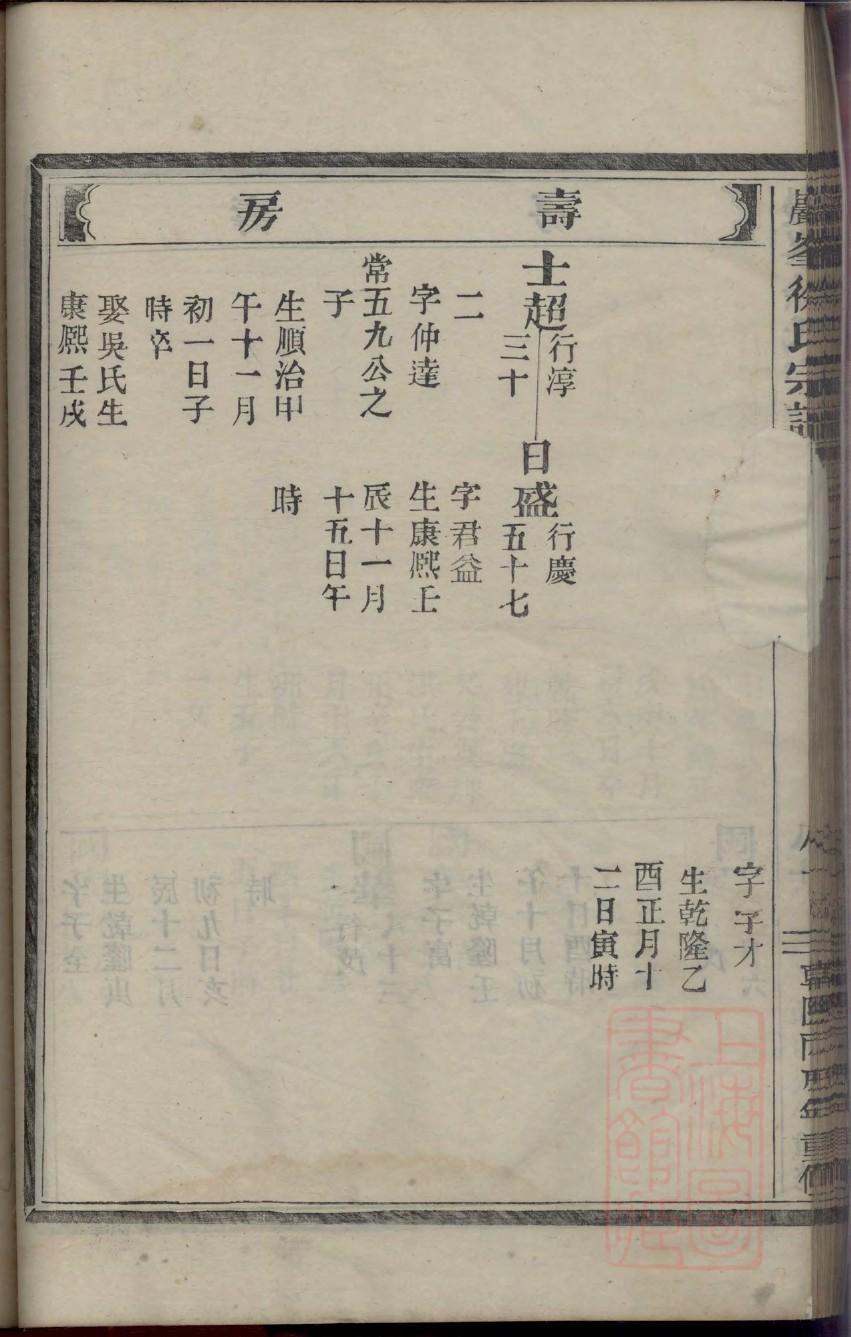 壽房
字字才
生乾隆乙
酉正月十
二日寅時
士超
行淳
三十
二
字仲達
常五九公之
子
生順治甲
午十一月
初一日子
時卒
娶吳氏生
康熙壬戌
日盛
行慶
五十七
字君益
生康熙壬
辰十一月
十五日午
時
上海圖書館藏